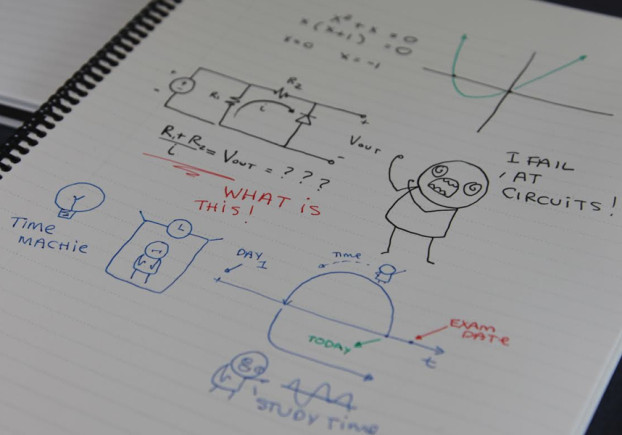 x² + x = 0
x(x+1) = 0
x=0 x=-1
R₂
R₁
i
+
-
+
-
Vout
R₁+R₂/i = Vout = ???
WHAT IS
THIS!
I FAIL
AT
CIRCUITS!
TIME
MACHIE
DAY
1
TIME
TODAY
EXAM
DATE
t
STUDY TIME